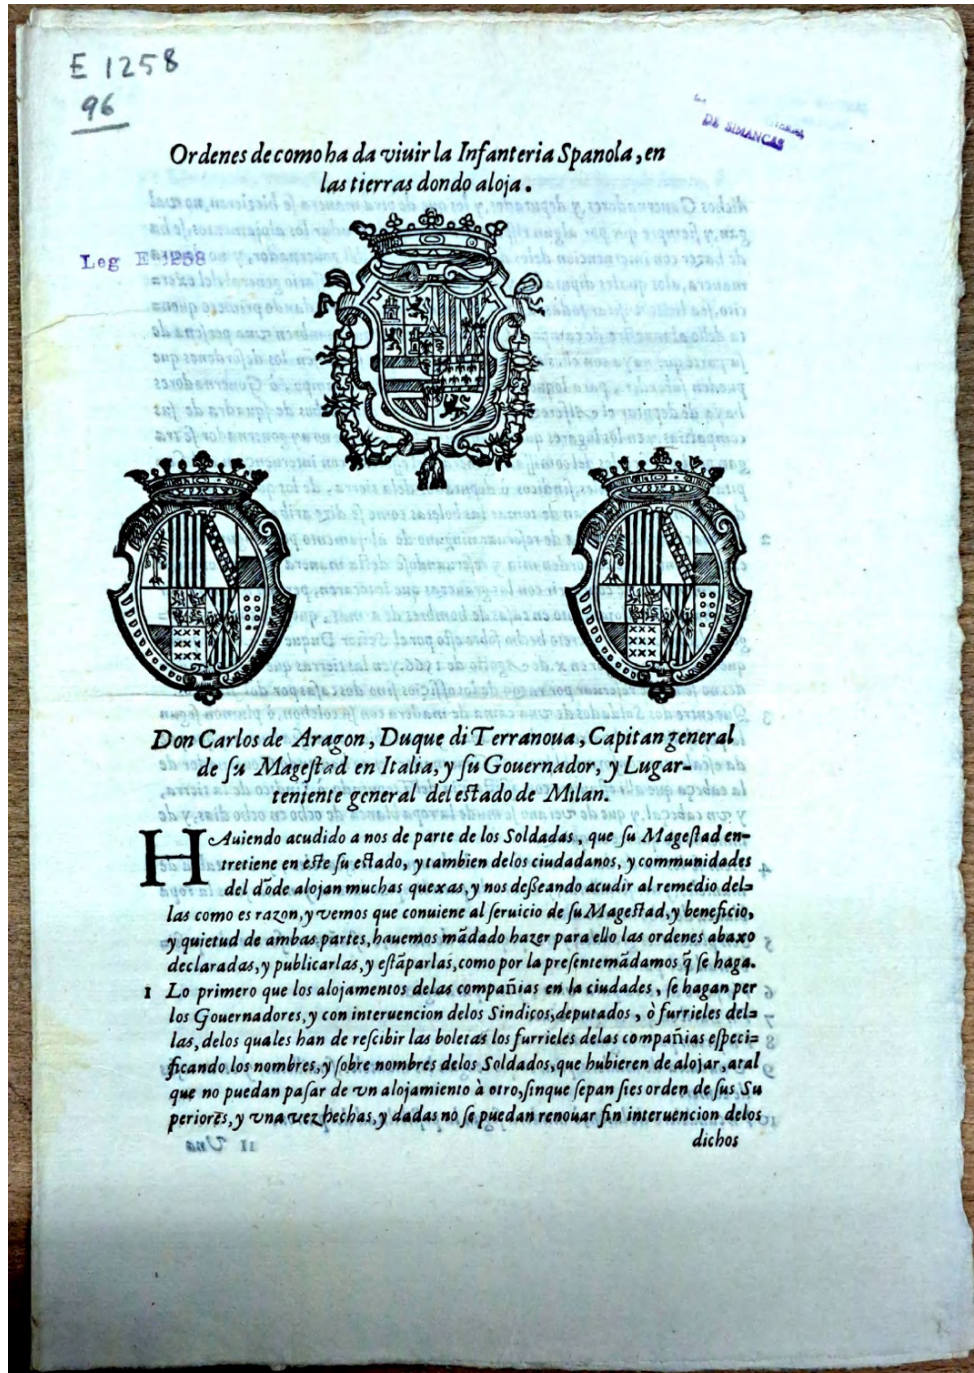 E 1258
96
DE SIMANCAS
Ordenes de como ha da viuir la Infanteria Spanola, en
las tierras dondo aloja.
Leg E 1258
Don Carlos de Aragon, Duque di Terranoua, Capitan general
de su Magestad en Italia, y su Gouernador, y Lugar-
teniente general del estado de Milan.
HAuiendo acudido a nos de parte de los Soldadas, que su Magestad en-
tretiene en este su estado, y tambien delos ciudadanos, y communidades
del dõde alojan muchas quexas, y nos desseando acudir al remedio del=
las como es razon, y vemos que conuiene al seruicio de su Magestad, y beneficio,
y quietud de ambas partes, hauemos mãdado hazer para ello las ordenes abaxo
declaradas, y publicarlas, y estãparlas, como por la presente mãdamos q̃ se haga.
1 Lo primero que los alojamentos delas compañias en la ciudades, se hagan per
los Gouernadores, y con interuencion delos Sindicos, deputados, ò furrieles del=
las, delos quales han de rescibir las boletas los furrieles delas compañias especi=
ficando los nombres, y sobre nombres delos Soldados, que hubieren de alojar, atal
que no puedan pasar de vn alojamiento à otro, sinque sepan sies orden de sus Su
periores, y vna vez hechas, y dadas no se puedan renouar sin interuencion delos
dichos